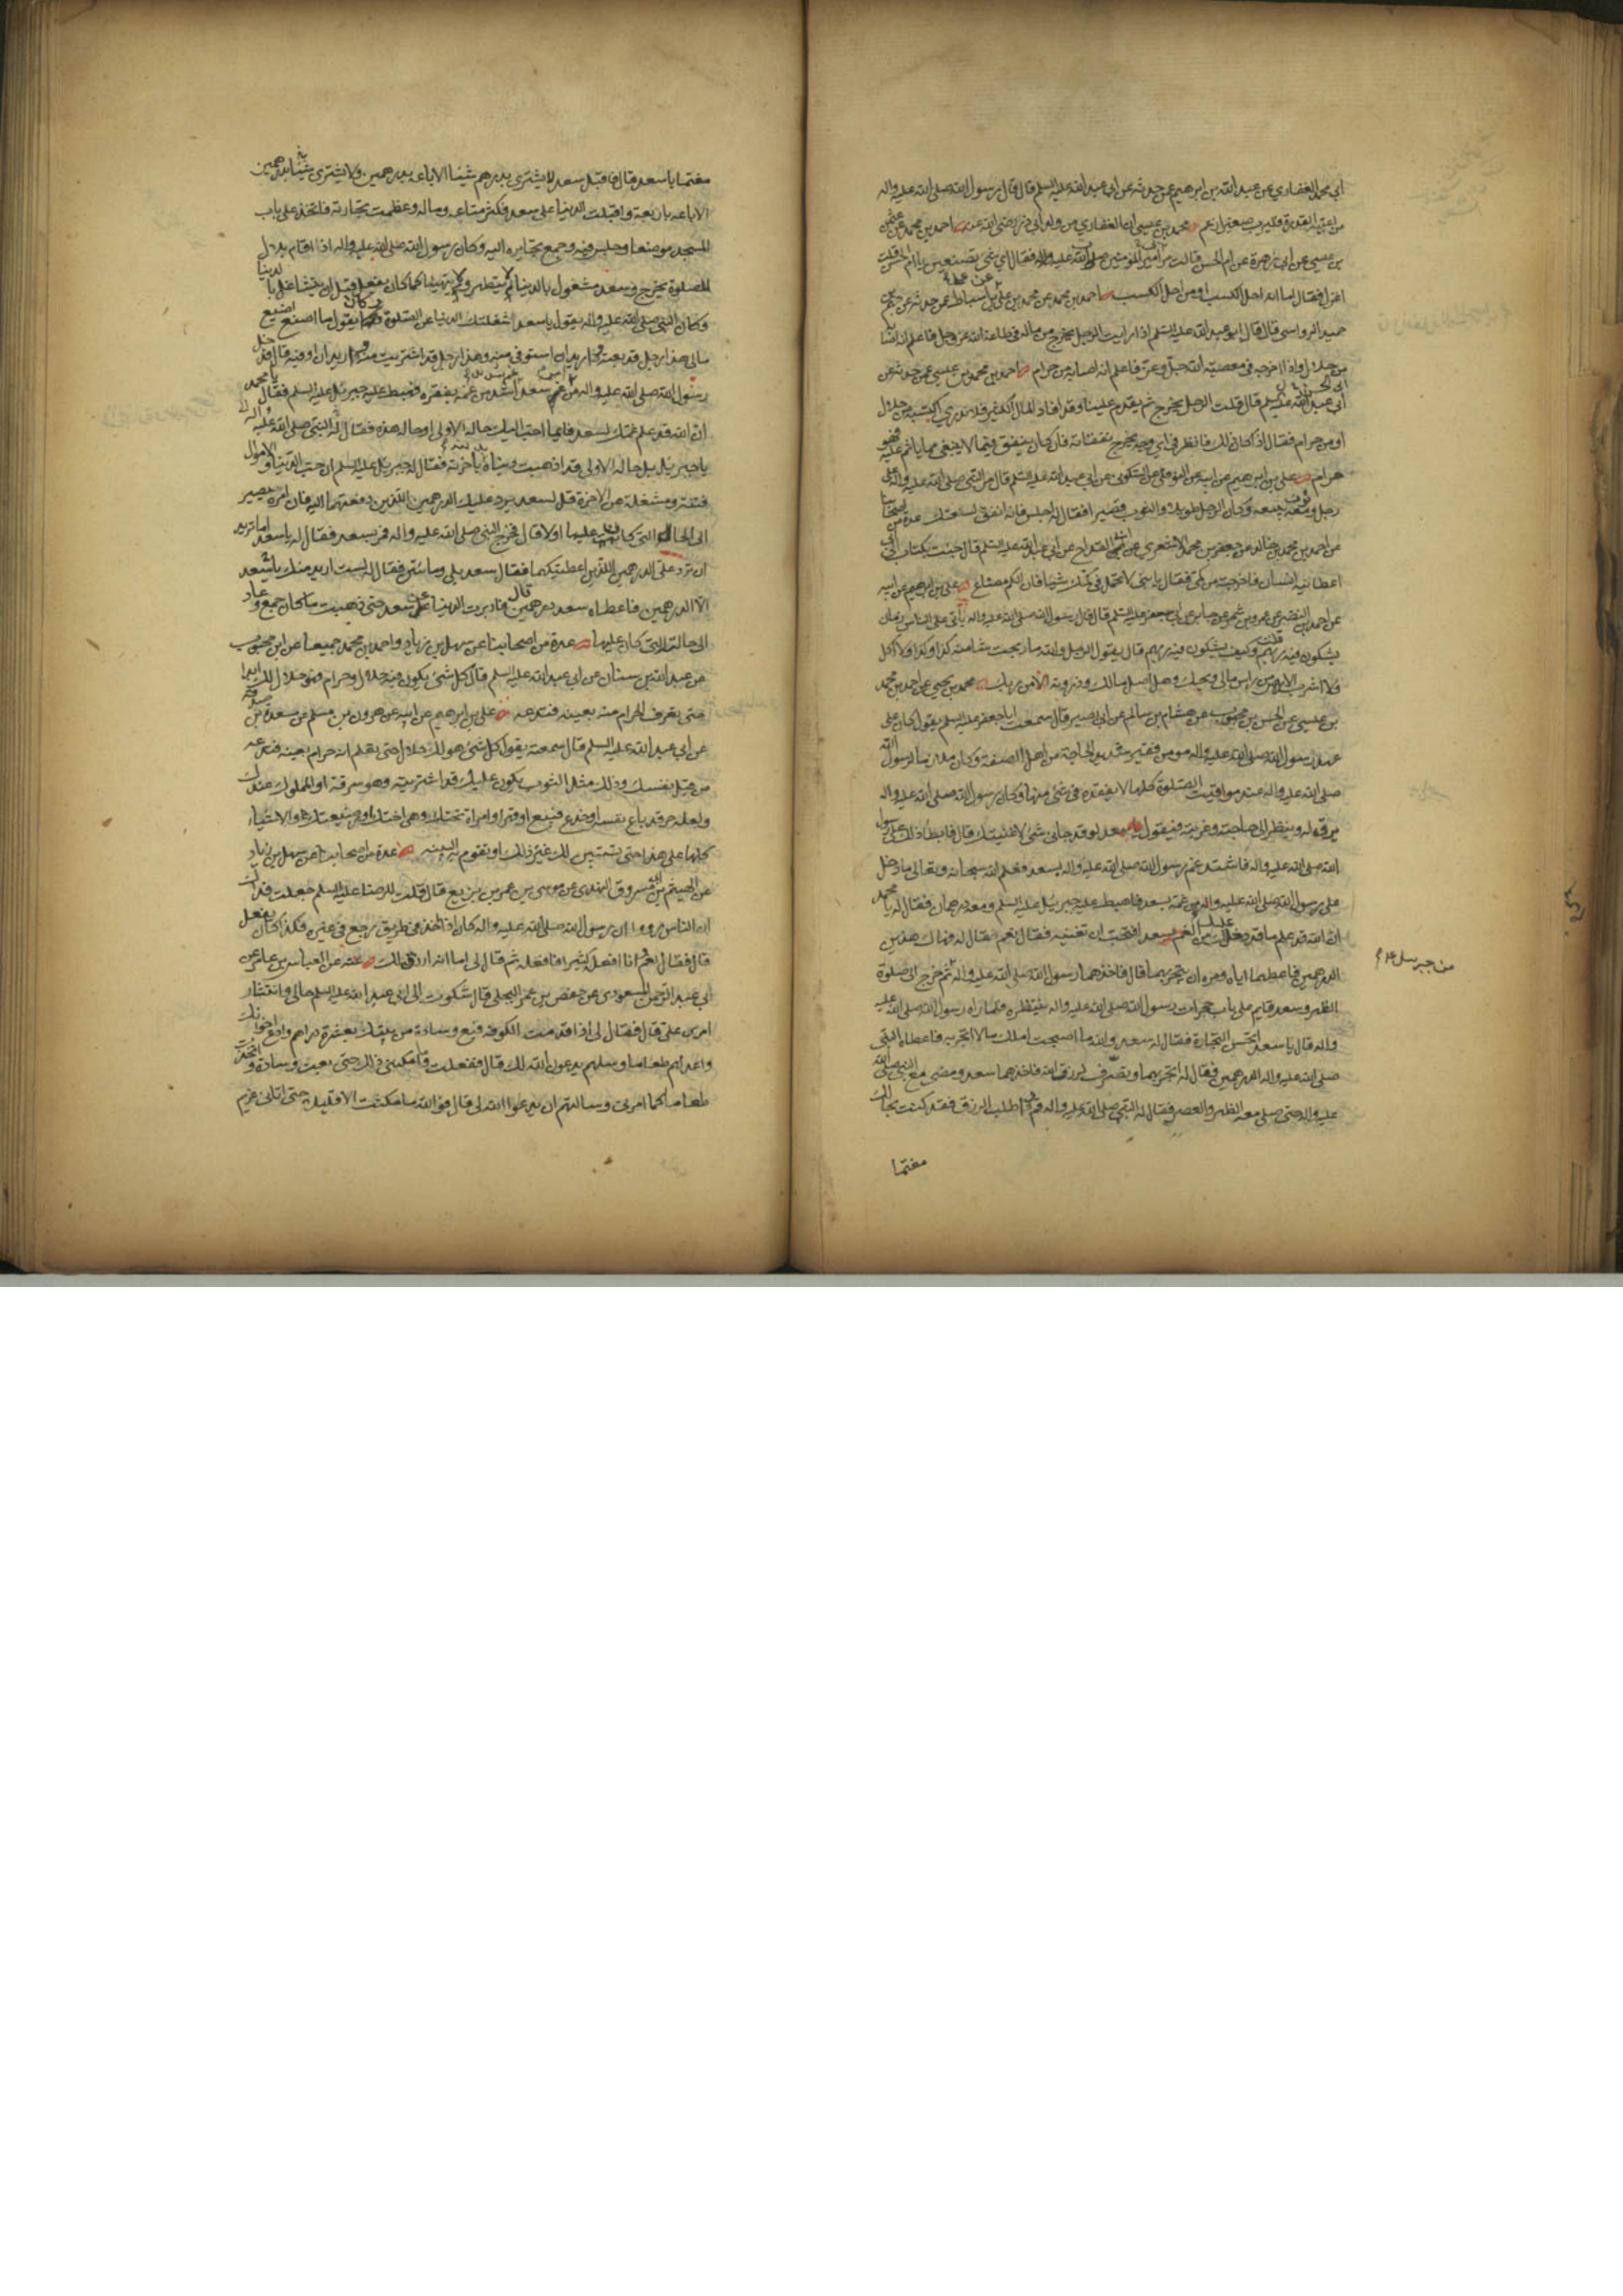 ابي محمد الغفاري عن عبد الله بن ابرهيم عمن حدثه عن ابي عبد الله عليه السلم قال قال رسول الله صلى الله عليه واله
من اعيته القدرة فليرب صغيرا زعم محمد بن عيسى ان الغفاري من ولد ابي ذر رضي الله عنه احمد بن محمد عن
بن عيسى عن ابي زهرة عن ام الحسن قالت مر امير المؤمنين صلوات الله عليه فقال اي شي تصنعين يا ام الحسن قلت
اغزل فقال اما انه احل الكسب او من احل الكسب احمد بن محمد عن محمد بن علي عن علي بن اسباط عمن حدثه عن جهم بن
حميد الرواسي قال قال ابو عبد الله عليه السلم اذا رايت الرجل يخرج من ماله في طاعة الله عز وجل فاعلم انه اصابه
من حلال واذا اخرجه في معصية الله جل وعز فاعلم انه اصابه من حرام احمد بن محمد بن عيسى عمن حدثه عن
ابي عبد الله عليه السلم قال قلت الرجل يخرج ثم يقدم علينا وقد افاد المال الكثير فلا ندري اكتسبه من حلال
او من حرام فقال اذا كان ذلك فانظر في اي وجه يخرج نفقاته فان كان ينفق فيما لا ينبغي مما ياثم عليه فهو
حرام علي بن ابرهيم عن ابيه عن النوفلي عن السكوني عن ابي عبد الله عليه السلم قال مر النبي صلى الله عليه واله على
رجل ومعه ثوب يبيعه وكان الرجل طويلا والثوب قصيرا فقال له اجلس فانه انفق لسلعتك عدة من اصحابنا
عن احمد بن محمد بن خالد عن جعفر بن محمد الاشعري عن ابن القداح عن ابي عبد الله عليه السلم قال جئت بكتاب الى ابي
اعطانيه انسان فاخرجته من كمي فقال يا بني لا تحمل في كمك شيئا فان الكم مضياع علي بن ابرهيم عن ابيه
عن احمد بن النضر عن عمرو بن شمر عن جابر عن ابي جعفر عليه السلم قال قال رسول الله صلى الله عليه واله ياتي على الناس زمان
يشكون فيه ربهم قلت وكيف يشكون فيه ربهم قال يقول الرجل والله ما ربحت شيئا منذ كذا وكذا ولا اكل
ولا اشرب الا من راس مالي ويحك وهل اصل مالك وذروته الا من ربك محمد بن يحيى عن احمد بن محمد
بن عيسى عن الحسن بن محبوب عن هشام بن سالم عن ابي بصير قال سمعت ابا جعفر عليه السلم يقول كان على
عهد رسول الله صلى الله عليه واله مومن فقير شديد الحاجة من اهل الصفة وكان ملازما لرسول الله
صلى الله عليه واله عند مواقيت الصلوة كلها لا يفقده في شي منها وكان رسول الله صلى الله عليه واله
يرق له وينظر الى حاجته وغربته فيقول يا سعد لو قد جاني شي لاغنيتك قال فابطا ذلك على رسول
الله صلى الله عليه واله فاشتد غم رسول الله صلى الله عليه واله بسعد فعلم الله سبحانه وتعالى ما دخل
على رسول الله صلى الله عليه واله من غمه لسعد فاهبط عليه جبرئيل عليه السلم ومعه درهمان فقال له يا محمد
ان الله قد علم ما قد دخلك من الغم بسعد افتحب ان تغنيه فقال نعم فقال له فهاك هذين
الدرهمين فاعطهما اياه ومره ان يتجر بهما قال فاخذهما رسول الله صلى الله عليه واله ثم خرج الى صلوة
من جبرئيل
الظهر وسعد قايم على باب حجرات رسول الله صلى الله عليه واله ينتظره فلما راه رسول الله صلى الله عليه
واله قال يا سعد اتحسن التجارة فقال له سعد والله ما اصبحت املك مالا اتجر به فاعطاه النبي
صلى الله عليه واله الدرهمين فقال له اتجر بهما وتصرف لرزق الله فاخذهما سعد ومضى مع النبي صلى الله
عليه واله حتى صلى معه الظهر والعصر فقال له النبي صلى الله عليه واله قم فاطلب الرزق فقد كنت بحالك
مغتما
مغتما يا سعد قال فاقبل سعد لا يشتري بدرهم شيئا الا باعه بدرهمين ولا يشتري شيئا بدرهمين
الا باعه باربعة واقبلت الدنيا على سعد فكثر متاعه وماله وعظمت تجارته فاتخذ على باب
المسجد موضعا وجلس فيه وجمع تجايره اليه وكان رسول الله صلى الله عليه واله اذا اقام بلال
للصلوة يخرج وسعد مشغول بالدنيا لم يتطهر ولم يتهيا كما كان يفعل قبل ان يتشاغل بالدنيا
وكان النبي صلى الله عليه واله يقول يا سعد شغلتك الدنيا عن الصلوة فكان يقول ما اصنع اضيع
مالي هذا رجل قد بعته فاريد ان استوفي منه وهذا رجل قد اشتريت منه فاريد ان اوفيه قال فدخل
رسول الله صلى الله عليه واله من امر سعد غم اشد من غمه بفقره فهبط عليه جبرئيل عليه السلم فقال يا محمد
ان الله قد علم غمك بسعد فايما احب اليك حاله الاولى او حاله هذه فقال له النبي صلى الله عليه واله
يا جبرئيل بل حاله الاولى قد اذهبت دنياه باخرته فقال له جبرئيل عليه السلم ان حب الدنيا والاموال
فتنة ومشغلة عن الاخرة قل لسعد يرد عليك الدرهمين اللذين دفعتهما اليه فان امره سيصير
الى الحالة التي كان عليها اولا قال فخرج النبي صلى الله عليه واله فمر بسعد فقال له يا سعد اما تريد
ان ترد علي الدرهمين اللذين اعطيتكهما فقال سعد بلى ومائتين فقال له لست اريد منك يا سعد
الا الدرهمين فاعطاه سعد درهمين قال فادبرت الدنيا على سعد حتى ذهبت ما كان جمع وعاد
الى حالته التي كان عليها عدة من اصحابنا عن سهل بن زياد واحمد بن محمد جميعا عن ابن محبوب
عن عبد الله بن سنان عن ابي عبد الله عليه السلم قال كل شي يكون فيه حلال وحرام فهو حلال لك ابدا
حتى تعرف الحرام منه بعينه فتدعه علي بن ابرهيم عن ابيه عن هرون بن مسلم عن مسعدة بن صدقة
عن ابي عبد الله عليه السلم قال سمعته يقول كل شي هو لك حلال حتى تعلم انه حرام بعينه فتدعه
من قبل نفسك وذلك مثل الثوب يكون عليك قد اشتريته وهو سرقة او المملوك عندك
ولعله حر قد باع نفسه او خدع فبيع او قهر او امراة تحتك وهي اختك او رضيعتك والاشياء
كلها على هذا حتى يستبين لك غير ذلك او تقوم به البينة عدة من اصحابنا عن سهل بن زياد
عن الهيثم بن ابي مسروق النهدي عن موسى بن عمر بن بزيع قال قلت للرضا عليه السلم جعلت فداك
ان الناس رووا ان رسول الله صلى الله عليه واله كان اذا اخذ في طريق رجع في غيره فكذا كان يفعل
قال فقال نعم فانا افعله كثيرا فافعله ثم قال لي اما انه ارزق لك عنه عن العباس بن عامر عن
ابي عبد الرحمن المسعودي عن حفص بن عمر البجلي قال شكوت الى ابي عبد الله عليه السلم حالي وانتشار
امري علي قال فقال لي اذا قدمت الكوفة فبع وسادة من بيتك بعشرة دراهم وادع اخوانك
واعد لهم طعاما وسلهم يدعون الله لك قال ففعلت وما امكنني ذلك حتى بعت وسادة واتخذت
طعاما كما امرني وسالتهم ان يدعوا الله لي قال فوالله ما مكثت الا قليلا حتى اتاني غريم